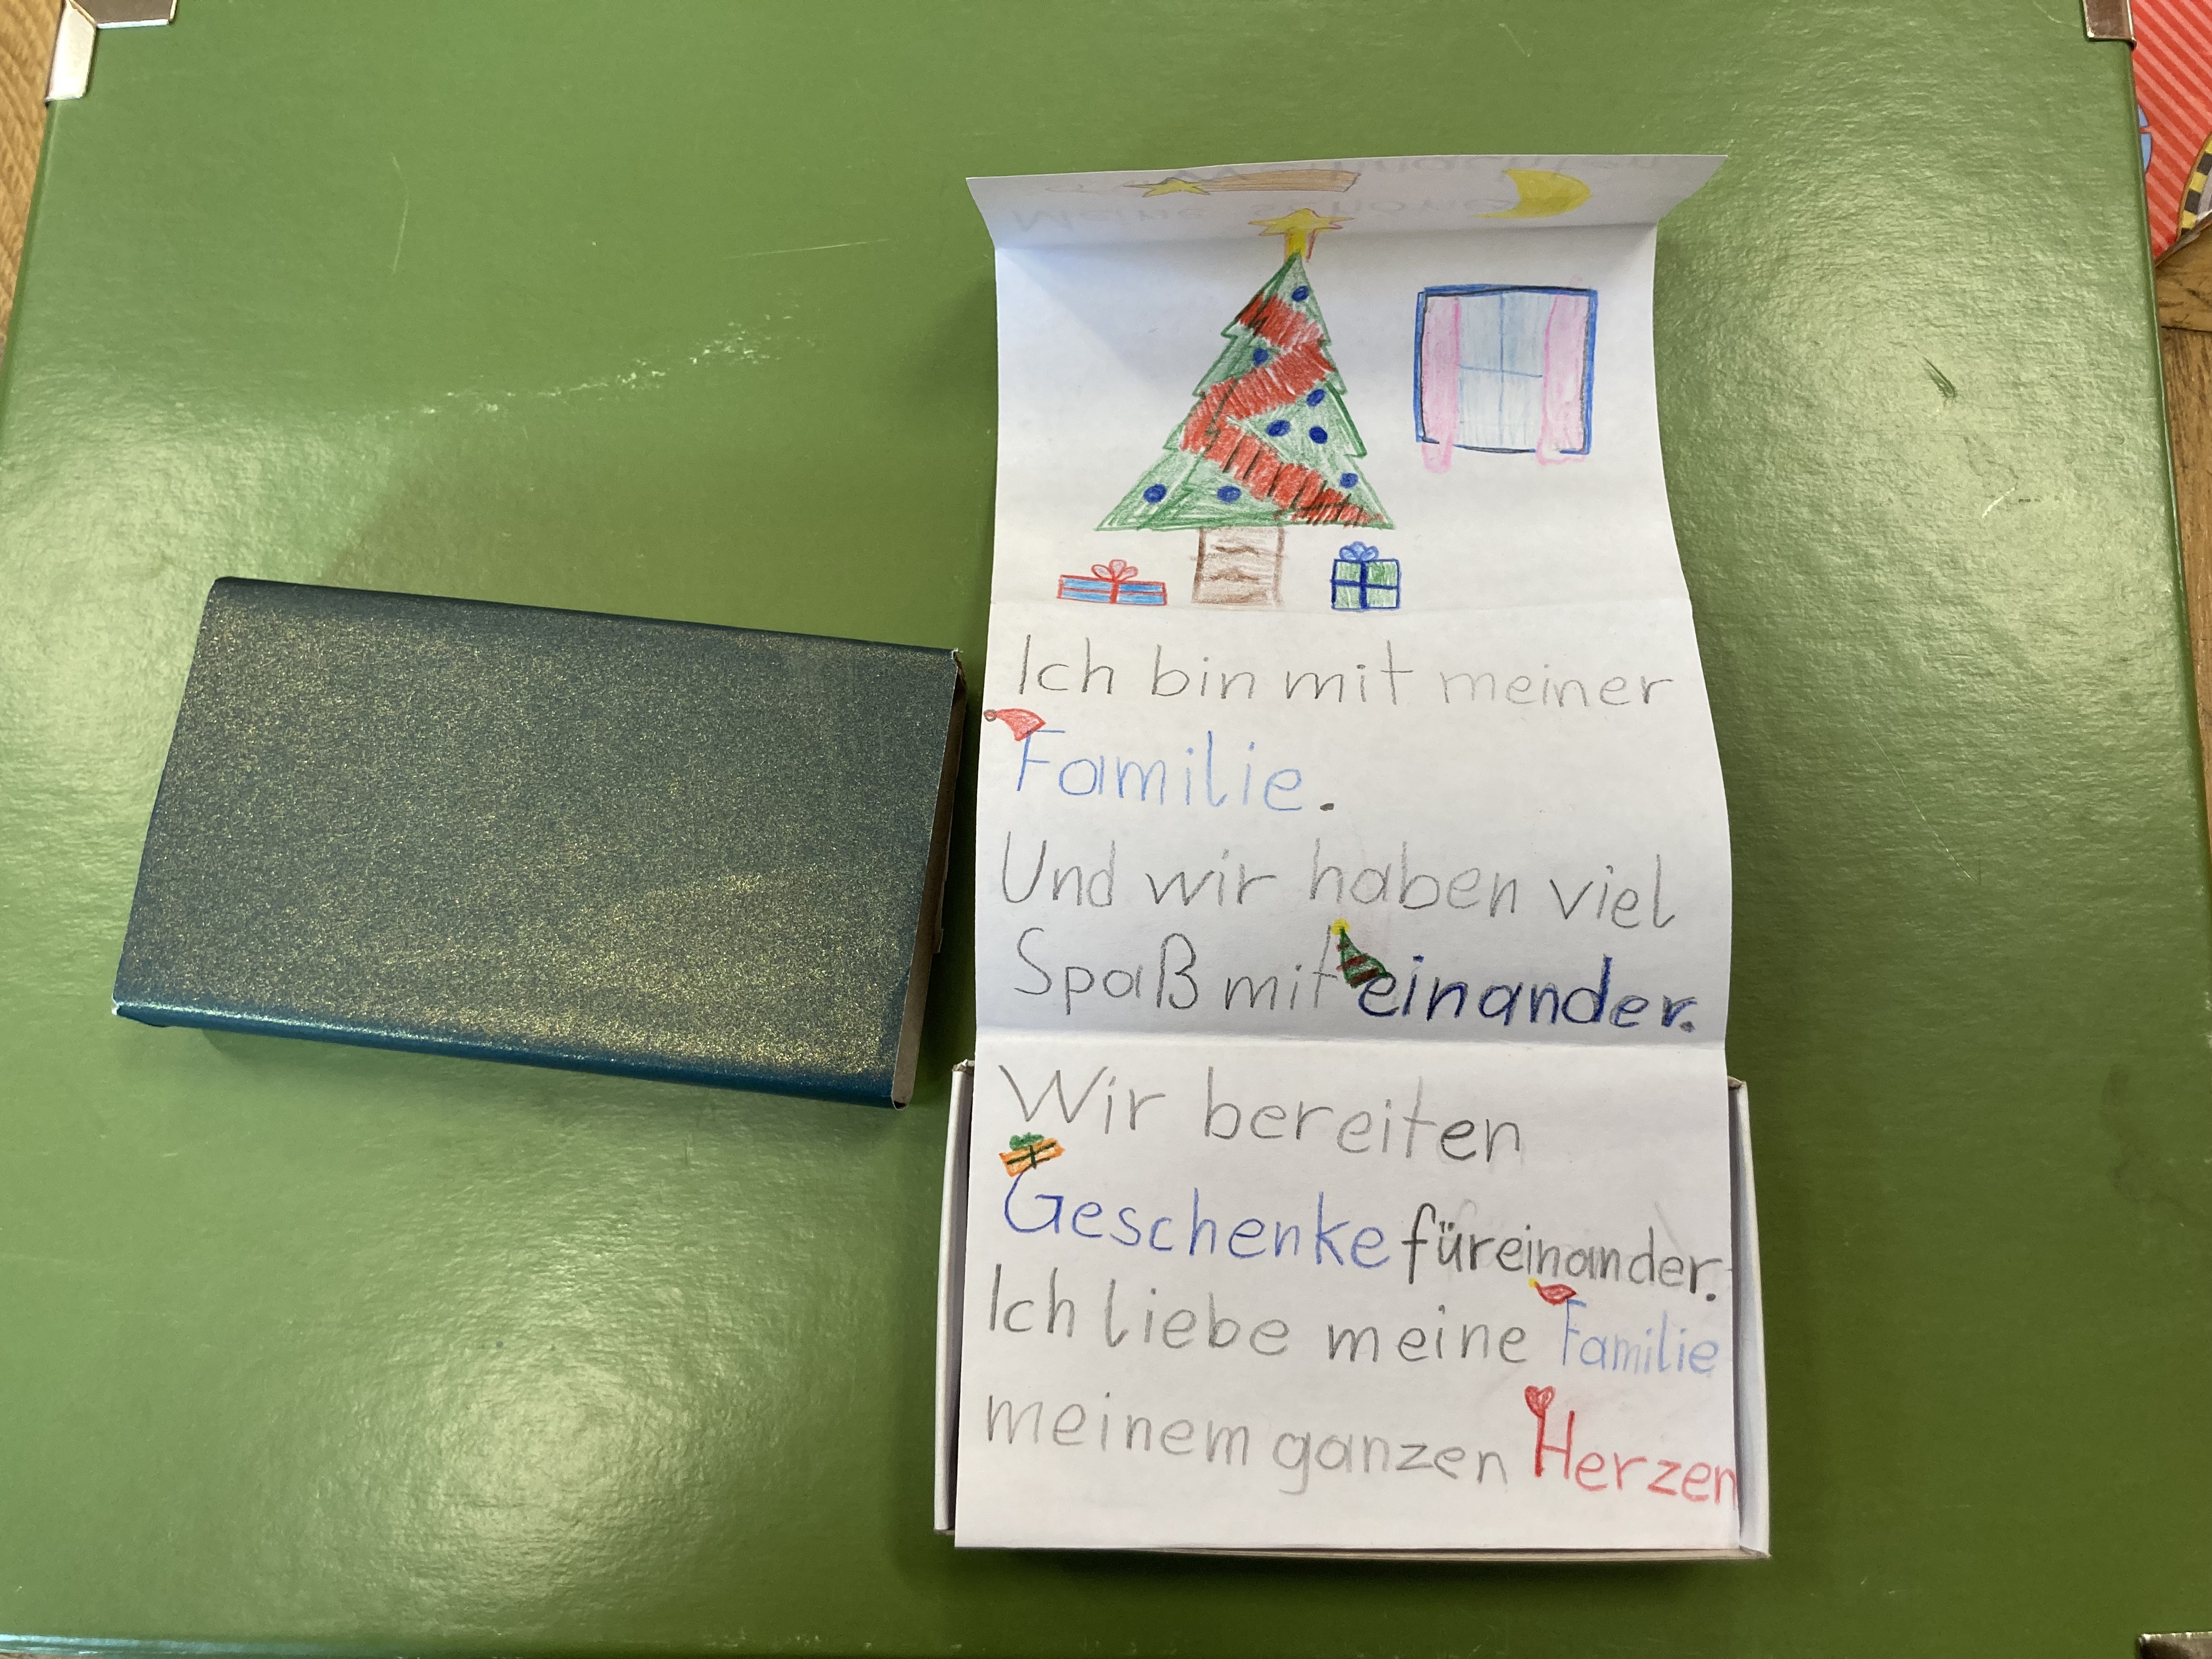 Meine schöne
Weihnachten
Ich bin mit meiner
Familie.
Und wir haben viel
Spaß miteinander.
Wir bereiten
Geschenke füreinander.
Ich liebe meine Familie
meinem ganzen Herzen